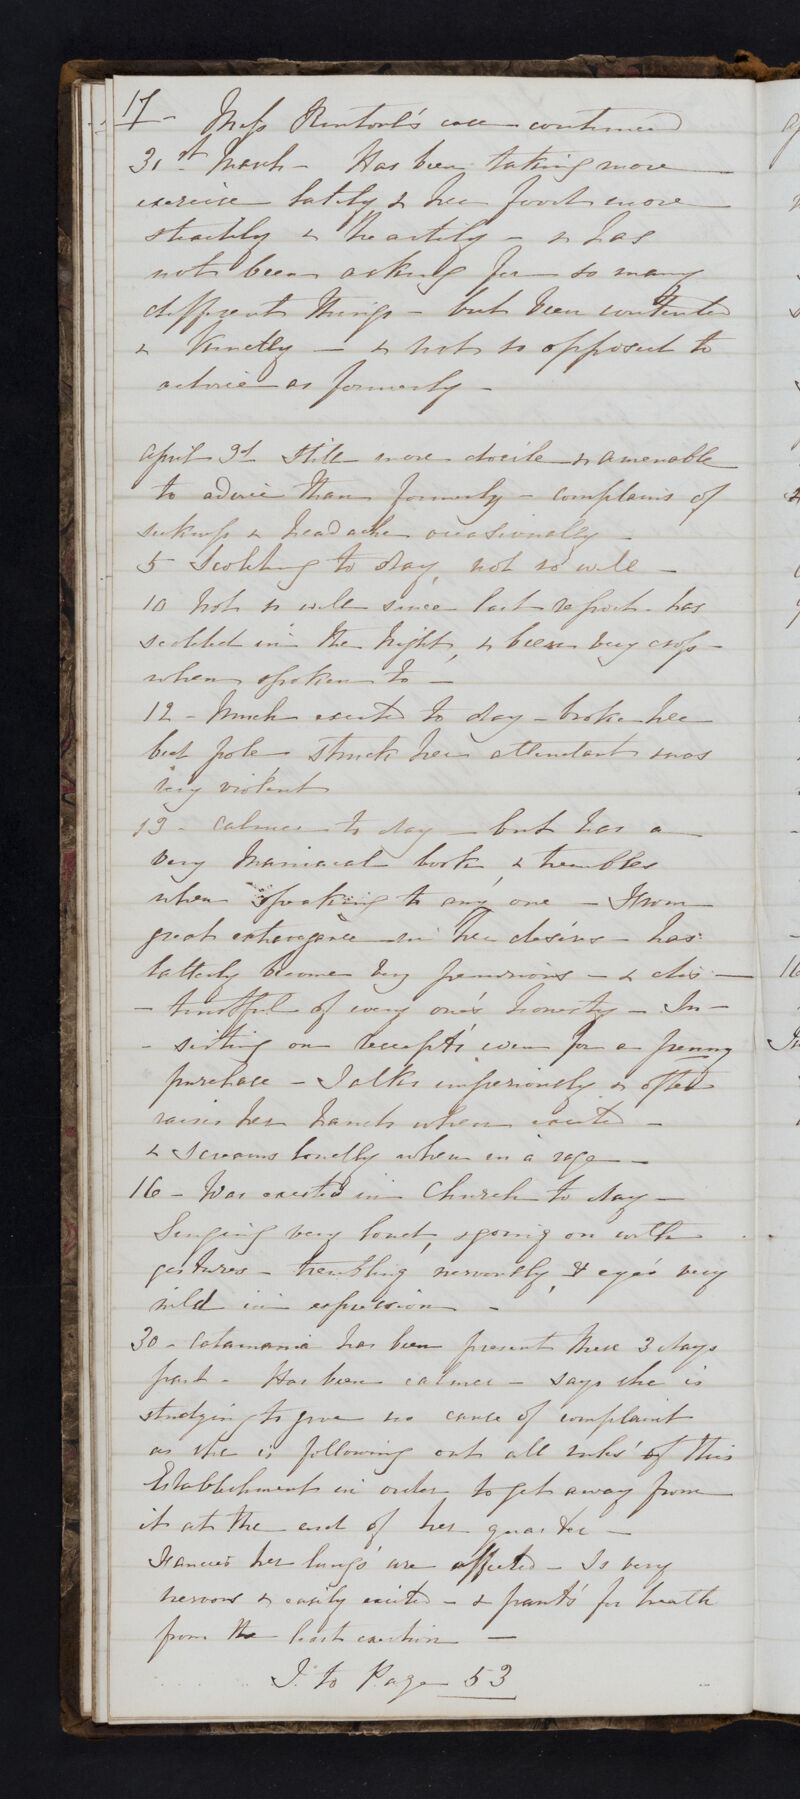 17 - Miss Rintoul's case continued
31st March - Has been taking more
exercise lately & her food more
steadily & heartily - & has
not been asking for so many
different things - but been contented
& - & not so opposed to
advice as formerly -
April 3d Still more docile & amenable
to advice than formerly - complains of
sickness & headache occasionally -
5 Scolding to day, not so well -
10 Not so well since last report - has
scolded in the Night, & been very cross
when spoken to -
12 - Much excited to day - broke her
bed pole struck her attendant & was
very violent
13 - Calmer to day - but has a
very Maniacal look, & trembles
when speaking to any one - From
great extravagance in her desires - has
latterly become very penurious - & dis-
-trustful of every one's honesty - In-
-sisting on receipts even for a penny
purchase - Talks imperiously & often
raises her hands when excited -
& screams loudly when in a rage -
16 - Was excited in Church to day -
Singing very loud, & going on with
gestures - trembling nervously, & eyes very
wild in expression -
30 - Catamania has been present these 3 days
past - Has been calmer - says she is
studying to give no cause of complaint
as she is following out all rules of this
Establishment in order to get away from
it at the end of her quarter -
Fancies her lungs are affected - Is very
nervous & easily excited - & pants for breath
from the least exertion -
T. to Page 53